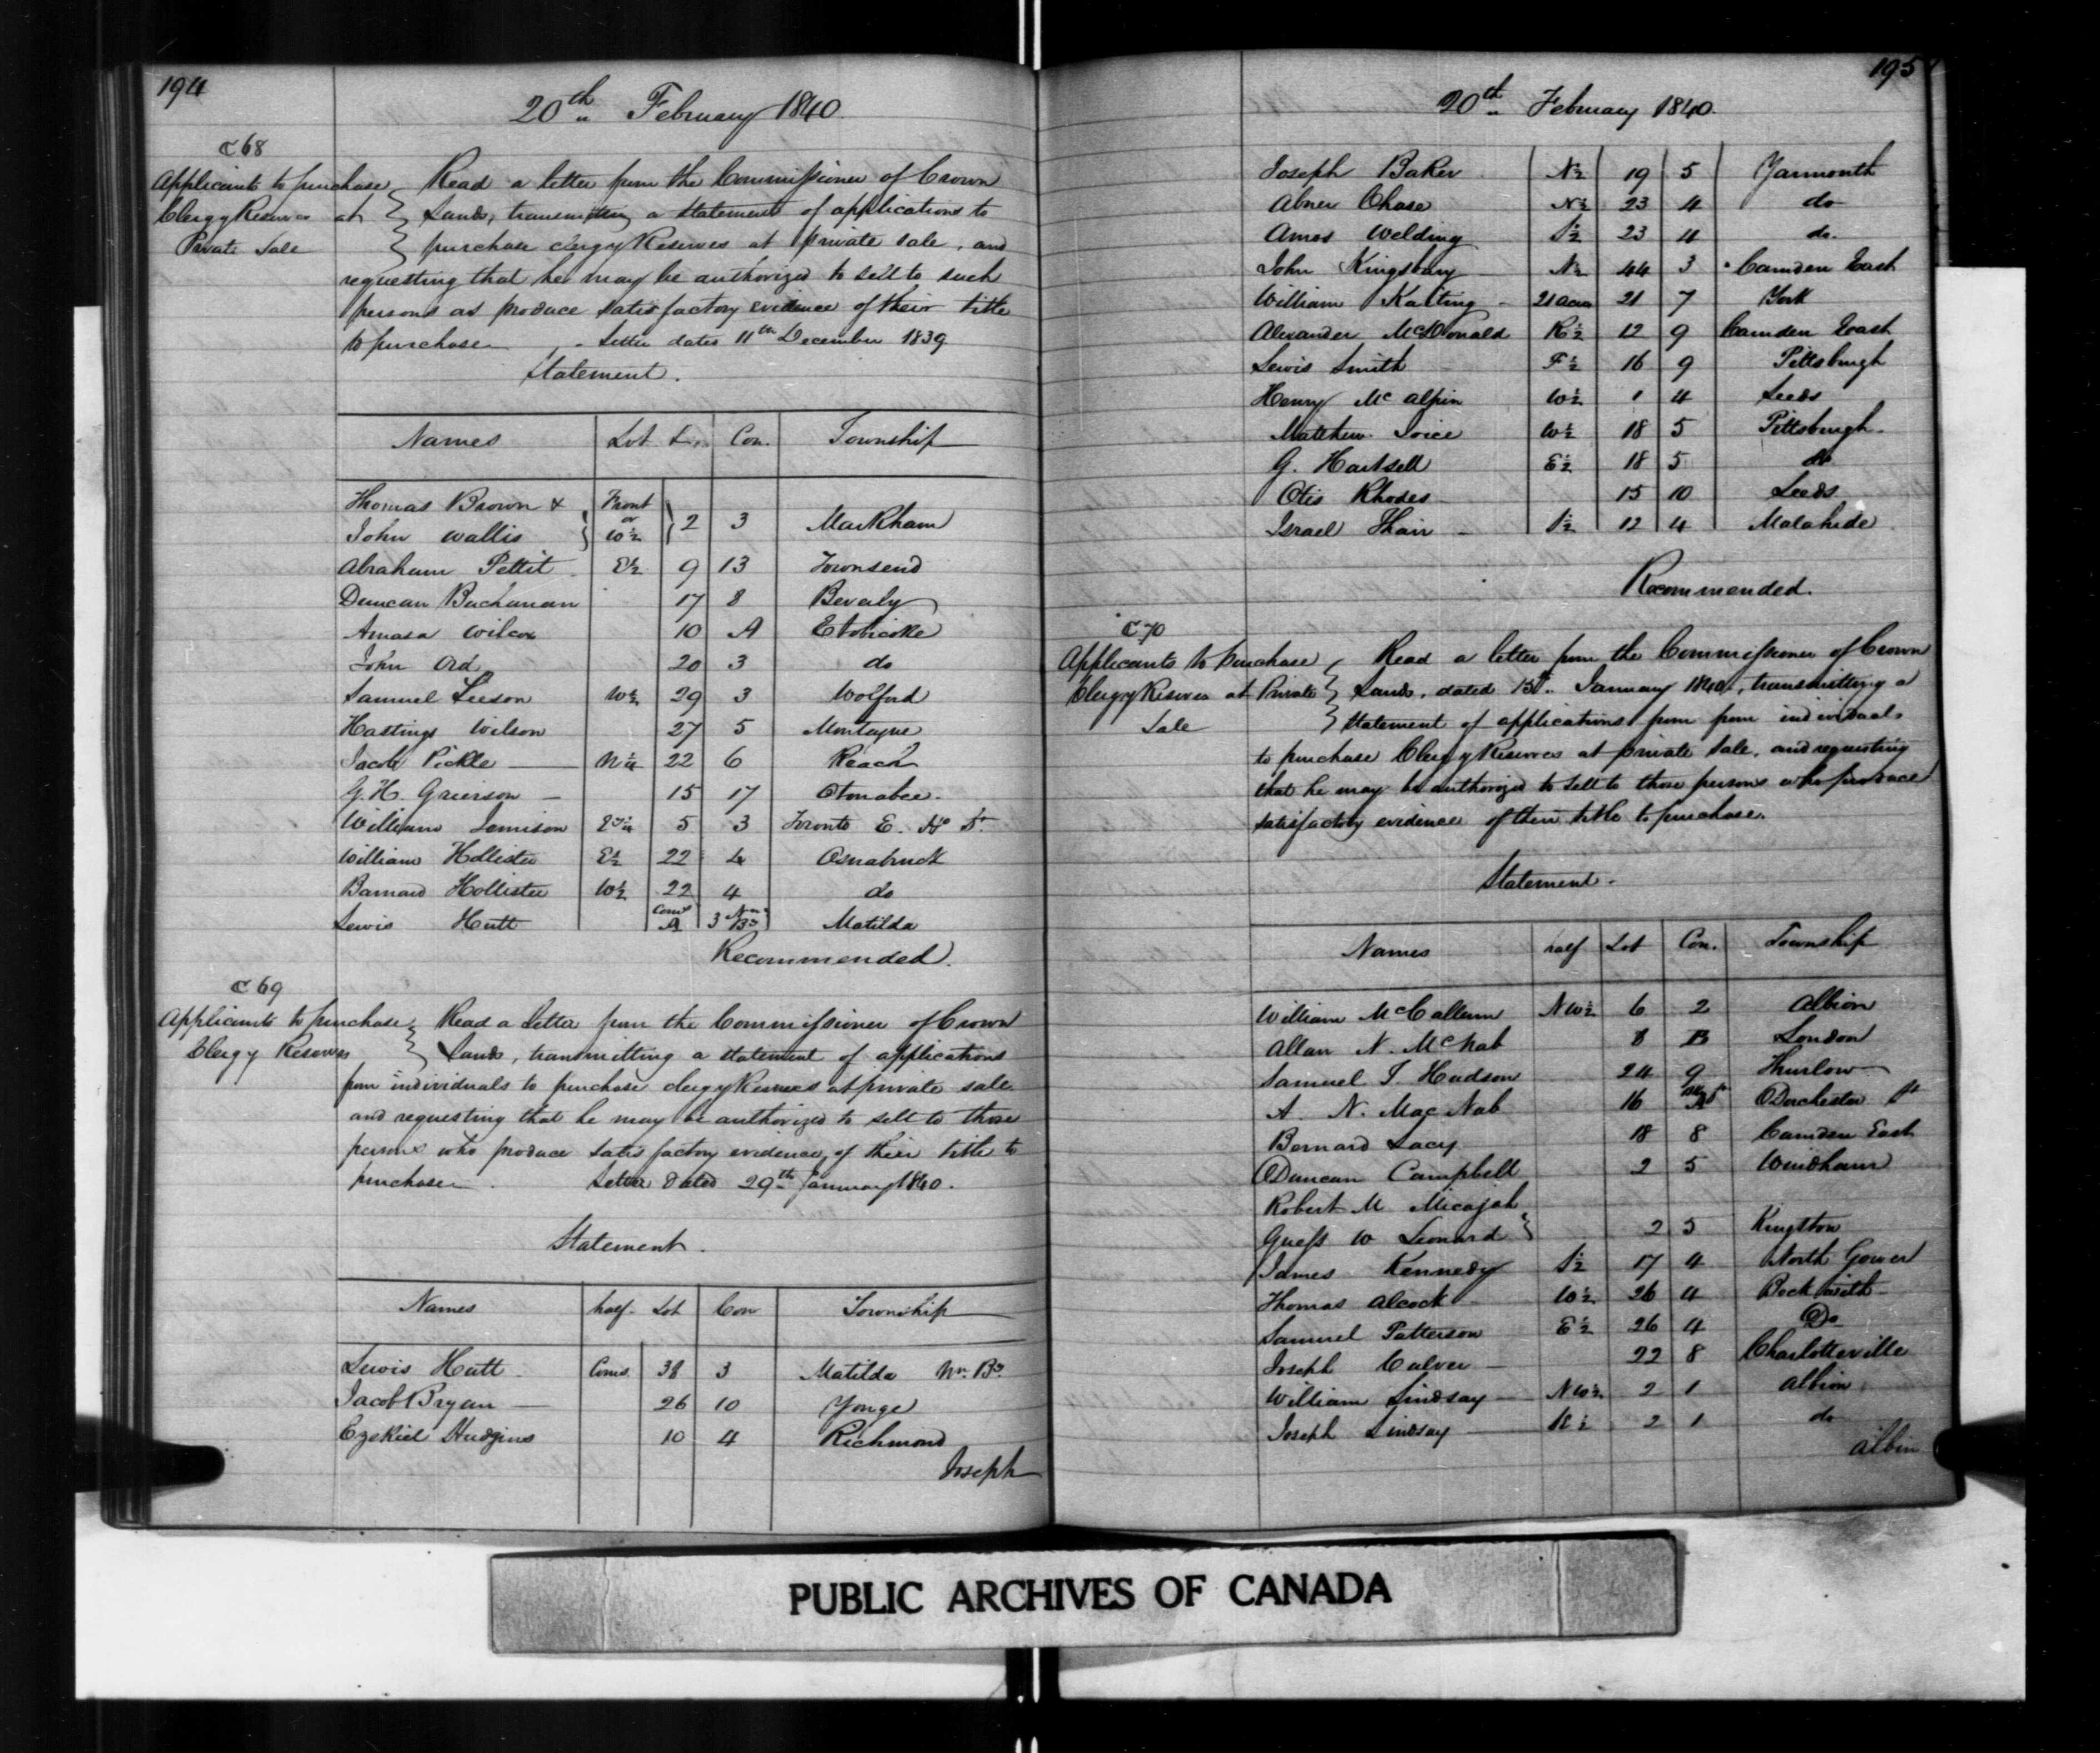 194
20th February 1840.
C 68
Applicants to purchase
Clergy Reserves at
Private Sale
Read a letter from the Commissioner of Crown
Lands, transmitting a statement of applications to
purchase clergy Reserves at private sale, and
requesting that he may be authorized to sell to such
persons as produce satisfactory evidence of their title
to purchase - Letter dated 11th December 1839
Statement.
Names Lot Con. Township
Thomas Brown & Front
or 2 3 Markham
John Wallis W½
Abraham Pettit E½ 9 13 Townsend
Duncan Buchanan 17 8 Beverly
Amasa Wilcox 10 A Etobicoke
John Ord 20 3 do
Samuel Leeson W½ 29 3 Wolford
Hastings Wilson 27 5 Montague
Jacob Pickle N¼ 22 6 Reach
G. H. Grierson 15 17 Otonabee.
William Jamison 5 3 Toronto E.
William Hollister E½ 22 4 Osnabruck
Barnard Hollister W½ 22 4 do
Lewis Hutt A 3 Matilda
Recommended.
C 69
Applicants to purchase
Clergy Reserves
Read a Letter from the Commissioner of Crown
Lands, transmitting a statement of applications
from individuals to purchase clergy Reserves at private sale.
and requesting that he may be authorized to sell to those
persons who produce satisfactory evidence of their title to
purchase. Letter dated 29th January 1840.
Statement.
Names half. Lot Con Township
Lewis Hutt Coms. 38 3 Matilda
Jacob Bryan 26 10 Yonge
Ezekiel Hudgins 10 4 Richmond
Joseph
195
20th February 1840.
Joseph Baker N½ 19 5 Yarmouth
Abner Chase N½ 23 4 do
Amos Welding S½ 23 4 do.
John Kingsbury N½ 44 3 Camden East
William Kaiting 21 acres 21 7 York
Alexander McDonald R½ 12 9 Camden East
Lewis Smith F½ 16 9 Pittsburgh
Henry McAlpin W½ 1 4 Leeds
Matthew Joice W½ 18 5 Pittsburgh.
G. Hartsell E½ 18 5 do
Otis Rhodes 15 10 Leeds
Israel Thair S½ 12 4 Malahide
Recommended.
C 70
Applicants to purchase
Clergy Reserves at Private
Sale
Read a letter from the Commissioner of Crown
Lands, dated 15th January 1840, transmitting a
statement of applications from from individuals
to purchase Clergy Reserves at private sale, and requesting
that he may be authorized to sell to those persons who produce
satisfactory evidence of their title to purchase.
Statement.
Names half Lot Con. Township
William McCallum NW½ 6 2 Albion
Allan N. McNab 8 B London
Samuel T. Hudson 24 9 Thurlow
A. N. MacNab 16 Dorchester
Bernard Lacy 18 8 Camden East
Duncan Campbell 2 5 Windham
Robert M Micajah
Guess W Leonard 2 5 Kingston
James Kennedy S½ 17 4 North Gower
Thomas Alcock W½ 26 4 Beckwith
Samuel Patterson E½ 26 4 Do
Joseph Culver 22 8 Charlotteville
William Lindsay NW½ 2 1 Albion
Joseph Lindsay 2 1 do
Albin
PUBLIC ARCHIVES OF CANADA